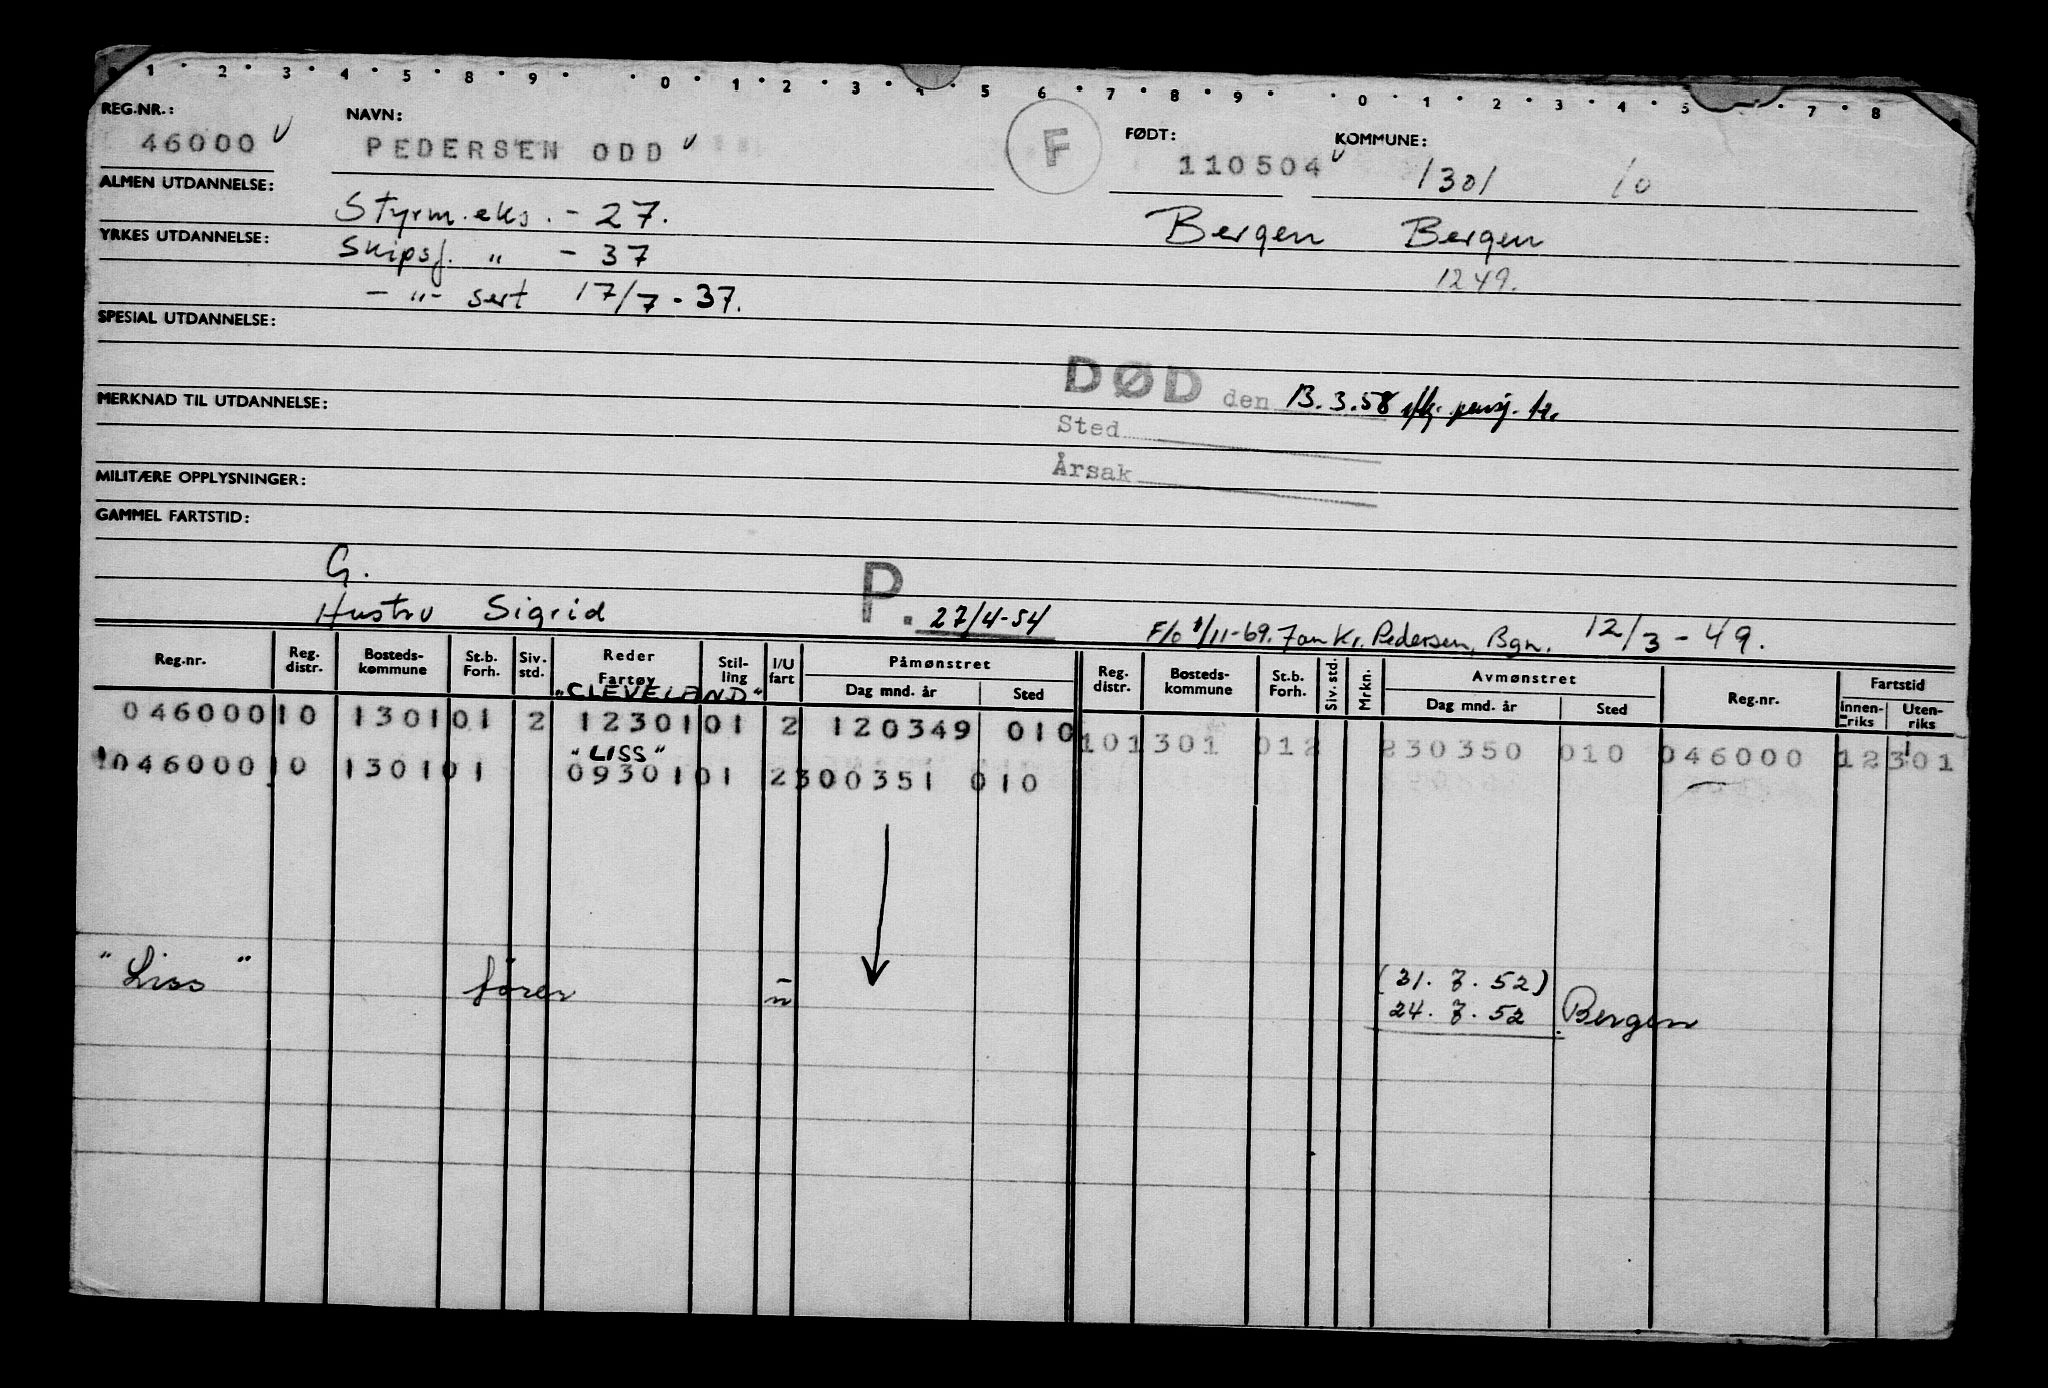 1 2 3 4 5 8 9 0 1 2 3 4 5 6 7 8 9 0 1 2 3 4 5 7 8
REG.NR.: NAVN: FØDT: KOMMUNE:
46000 PEDERSEN ODD F 110504 1301 10
ALMEN UTDANNELSE: Styrm.eks. - 27. Bergen Bergen
YRKES UTDANNELSE: Skipsf. " - 37 1249.
- " - sert 17/7 - 37.
SPESIAL UTDANNELSE:
DØD den 13.3.58
MERKNAD TIL UTDANNELSE:
Sted
Årsak
MILITÆRE OPPLYSNINGER:
GAMMEL FARTSTID:
G.
Hustru Sigrid P. 27/4-54 F/o 1/11-69. Jan Kr. Pedersen, Bgn. 12/3-49.
Reg.nr. Reg. distr. Bosteds-kommune St.b. Forh. Siv. std. Reder Fartøy Stil-ling I/U fart Påmønstret Dag mnd. år Sted Reg. distr. Bosteds-kommune St.b. Forh. Siv. std. Mrkn. Avmønstret Dag mnd. år Sted Reg.nr. Fartstid Innen-riks Uten-riks
"CLEVELAND"
046000 10 1301 01 2 12301 01 2 120349 010 10 1301 012 230350 010 046000 12301
"LISS"
046000 10 1301 01 09301 01 2 300351 010
"Liss" fører u (21.7.52)
24.7.52 Bergen